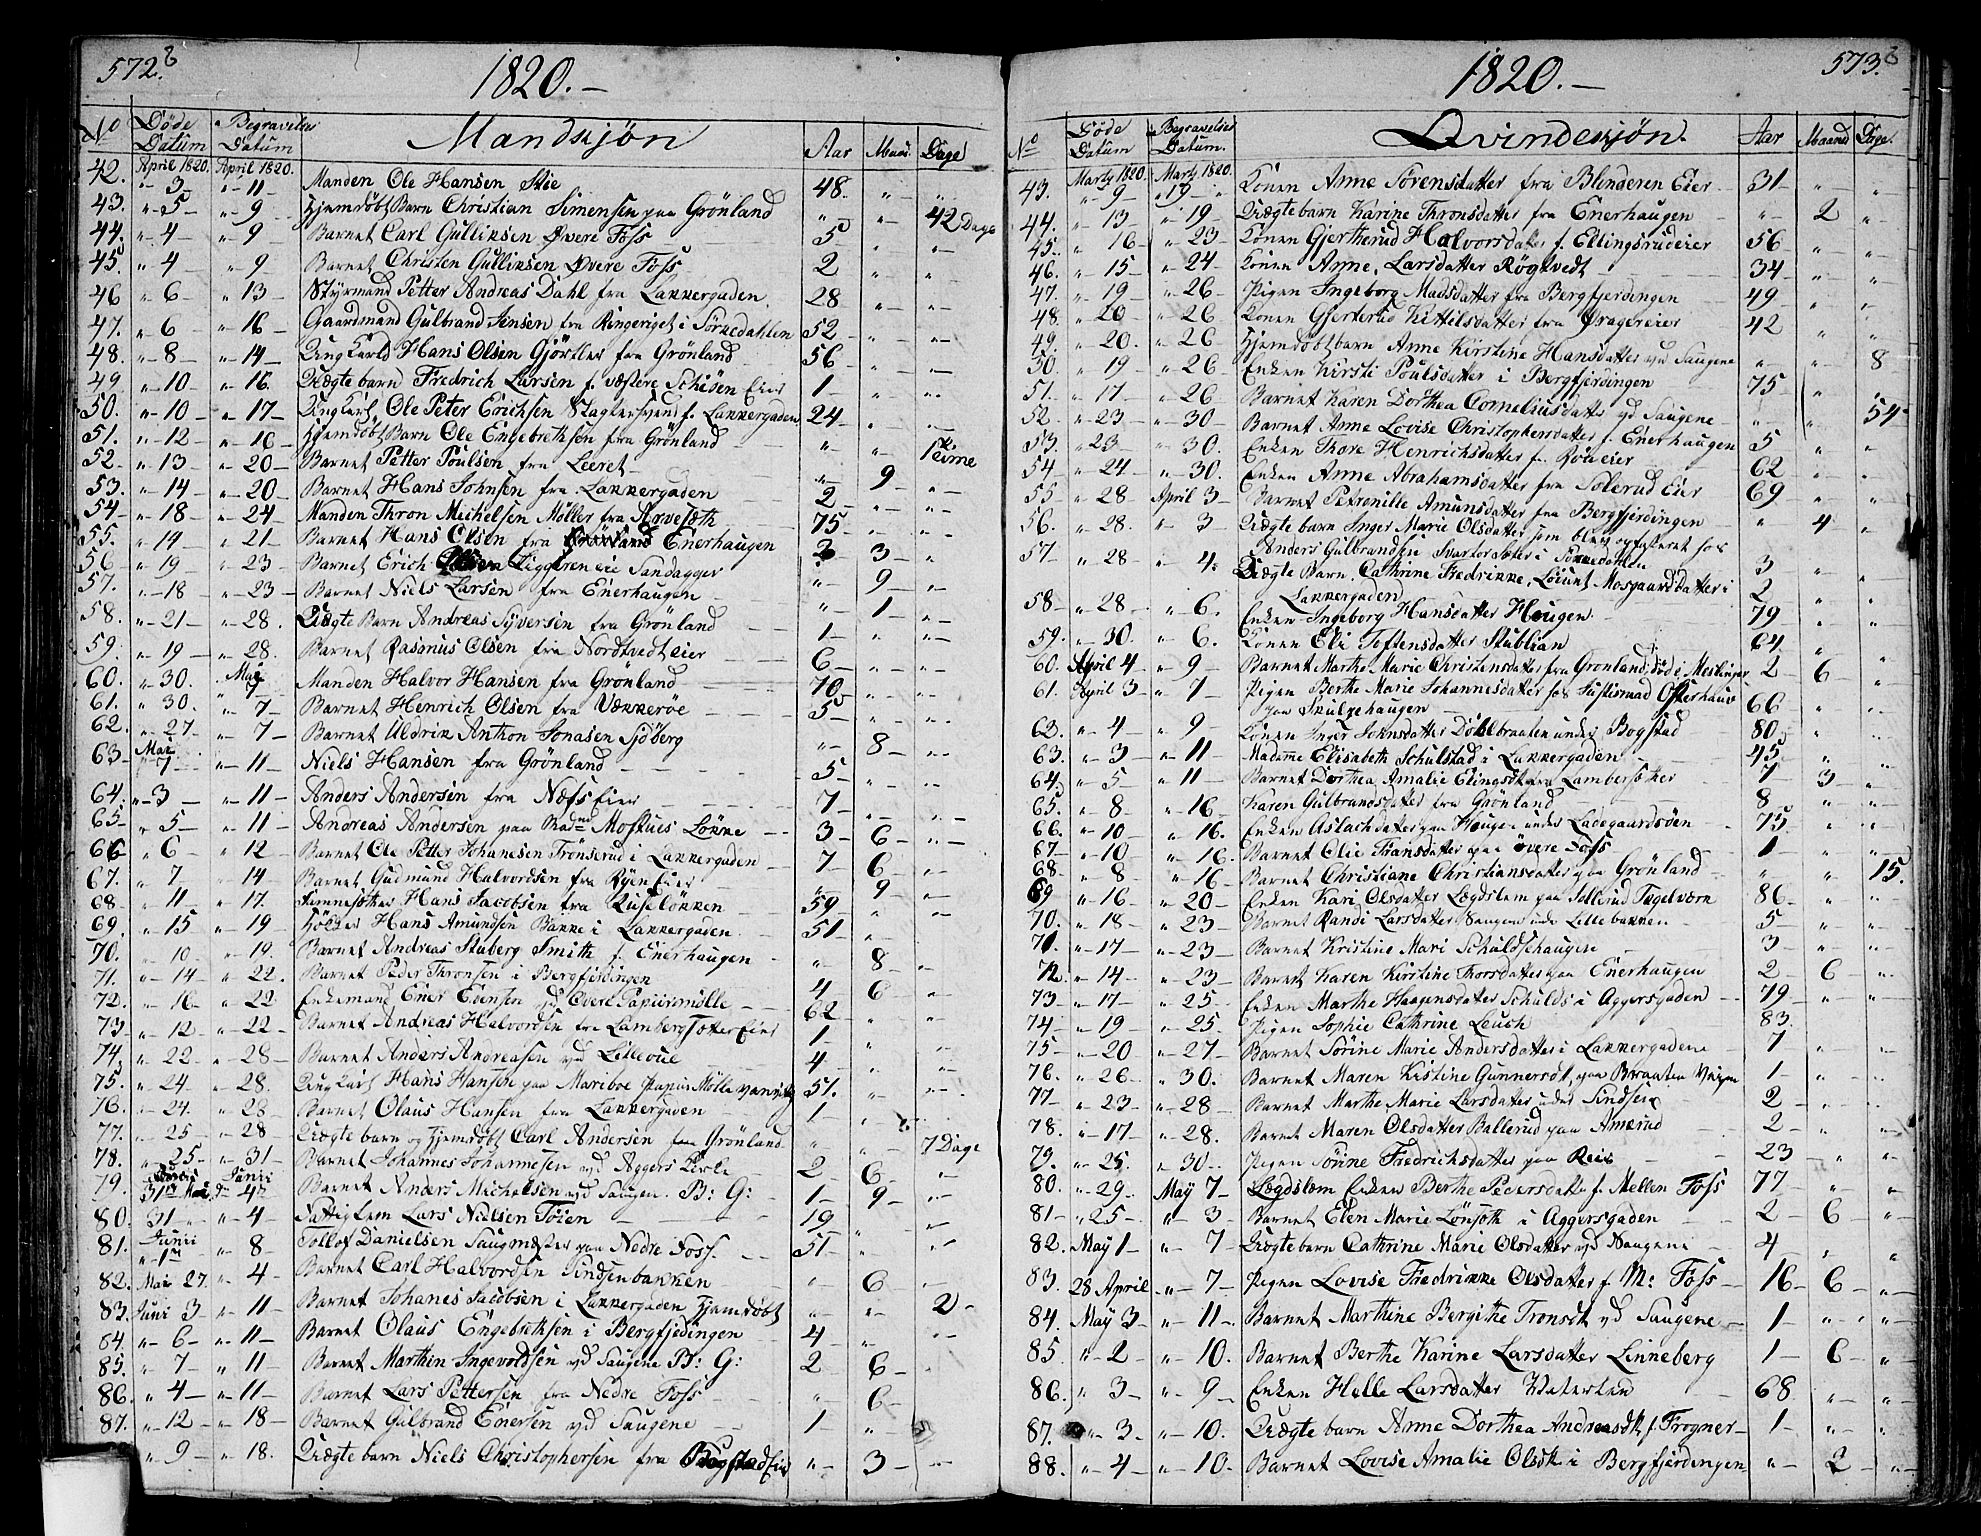 572.
1820.–
No Døde Datum Begravelses Datum Mandkjøn Aar Maan. Dage
April 1820. April 1820.
42. " 3 " 11 Manden Ole Hansen 48. " "
43. " 5 " 9 Hjemdøbt Barn Christian Simensen paa Grönland " " 42 Dage
44. " 4 " 9 Barnet Carl Gullinsen Øvere Foss 5 " "
45 " 4 " 9 Barnet Christen Gullinsen Øvere Foss 2 " "
46 " 6 " 13 Styrmand Petter Andreas Dahl fra Lakkergaden 28 " "
47. " 6 " 16 Gaardmand Gulbrand Jensen fra Ringeriget i Sörkedahlen 52 " "
48. " 8 " 14 Ung Karl Hans Olsen Gjörtler fra Grönland 56 " "
49 " 10 " 16. Uægte barn Fredrich Larsen f. væstere Eier 1 " "
50. " 10 " 17 Ung Karl Ole Peter Erichsen Slagtersvend f. Lakkergaden 24 " "
51. " 12 " 16 Hjemdøbt Barn Ole Engebretsen fra Grönland " " 1
52. " 13 " 20 Barnet Petter Poulsen fra Leeret " 9 "
53. " 14 " 20 Barnet Hans Johnsen fra Lakkergaden 2 " "
54 " 18 " 24 Manden Thron Michelsen Møller fra 75 " "
55. " 14 " 21 Barnet Hans Olsen fra Enerhaugen 3 "
56 " 19 " 23 Barnet Erich 9 "
57. " 18 " 23 Barnet Niels Larsen fra Enerhaugen " 1 "
58. " 21 " 28. Uægte Barn Andreas Syversen fra Grönland 1 " "
59. " 19 " 28. Barnet Rasmus Olsen fra Nordtvedt eier 6 " "
60. " 30. May 7 Manden Halvor Hansen fra Grönland 70 " "
61. " 30. " 7 Barnet Henrich Olsen fra Vækkerøe 5 " "
62. " 27 " 7 Barnet Uldrik Anthon Jonasen Sjöberg " 8 "
63 Mai 1 " 11 Niels Hansen fra Grönland 5 " "
64. " 3 " 11 Anders Andersen fra Næss Eier 7 " "
65 " 5 " 11 Andreas Andersen paa Mostues Løkke 3 6 "
66 " 6 " 12 Barnet Ole Petter Johanesen Trönserud i Lakkergaden 7 6 "
67. " 7 " 14 Barnet Gudmund Halvordsen fra Ryen Eier " 9 "
68 " 11 " 17. Hans Jacobsen fra Ruseløkken 59 " "
69. " 15 " 19 Hans Amundsen Bakke i Lakkergaden 51 " "
70. " 10 " 19. Barnet Andreas Staberg Smith f. Enerhaugen " 8 "
71. " 14 " 22. Barnet Peder Thronsen i Bergfjerdingen 4 6 "
72. " 16 " 22 Enkemand Ener Evensen vd Øvere Papiirmölle 62 " "
73 " 12 " 22 Barnet Andreas Halvordsen fra Eier 1 " "
74. " 22 " 28 Barnet Anders Andreasen vd Lilleoul 4 " "
75. " 24 " 28. Ung Karl Hans Hansen paa Mariboe Papiir Mølle 51. " "
76. " 24. " 28 Barnet Olaus Hansen fra Lakkergaden 1 " "
77. " 25 " 28 Uægte barn og Hjemdøbt Carl Andersen fra Grönland " " 7 Dage
78. " 25 " 31 Barnet Johannes Johannesen vd Aggers Kirke 2 6 "
79. 31 Mai Junii 4 Barnet Anders Michelsen vd Saugen. B: G: 1 9 "
80. 31 " 4 Fattiglem Lars Nielsen Töien 19 " "
81. Junii 1 " 8 Tollof Danielsen Saugmester paa Nedre Foss. 51 " "
82. Mai 27. " 4 Barnet Carl Halvordsen Sindsenbakken " 6 "
83. Juni 3 " 11 Barnet Johanes Jacobsen i Lakkergaden Hjemdøbt " " 2
84. " 6 " 11 Barnet Olaus Engebretsen i Bergfjedingen 4 " "
85. " 7 " 11 Barnet Marthin Ingevoldsen vd Saugene B: G: 2 6 "
86. " 4 " 11 Barnet Lars Pettersen fra Nedre Foss " 6 "
87. " 12 " 18 Barnet Gulbrand Enersen vd Saugene 1 " "
" 9 " 18. Uægte barn Niels Christophersen fra Eier " 3 "
573.
1820.–
No Døde Datum Begravelses Datum. Qvindekjøn Aar Maaned Dage
Marty 1820. Marty 1820.
43. " 9 " 19 Konen Anne Sørensdatter fra Blinderen Eier 31 " "
44. " 13 " 19 Uægtebarn Karine Thronsdatter fra Enerhaugen " 2 "
45. " 16 " 23 Konen Gjertherud Halvorsdatter f. Ellingsrudeier 56 " "
46. " 15 " 24 Konen Anne Larsdatter Røgtvedt 34 " "
47. " 19 " 26 Pigen Ingeborg Madsdatter fra Bergfjerdingen 49 " "
48. " 20 " 26 Konen Gjertrud Kittelsdatter fra 42 " "
49. " 20. " 26 Hjemdöbtbarn Anne Kirstine Hansdatter vd Saugene " " 8
50. " 19 " 26 Enken Kirsti Poulsdatter i Bergfjerdingen 75 " "
51. " 17 " 26 Barnet Karen Dorthea Cornelius datter vd Saugene " " 54
52. " 23 " 30 Barnet Anne Lovise Christophersdatter f. Enerhaugen 5 " "
53. " 23 " 30. Enken Thore Henrichsdatter f. 62 " "
54 " 24 " 30. Enken Anne Abrahamsdatter fra Eier 69 " "
55 " 28 April 3 Barnet Petronille Amundsdatter fra Bergfjerdingen " 4 "
56. " 28. " 3 Uægte barn Inger Marie Olsdatter som blev opfostret hos
Anders Gulbrandsen i Sörkedahlen 3 " "
57. " 28 " 4. Uægte Barn. Cathrine Fredrikke, Mosgaardsdatter i
Lakkergaden 2 " "
58 " 28 " 6. Enken Ingeborg Hansdatter Haugen 79 " "
59. " 30. " 6. Konen Eli Toftensdatter Stublian 64 " "
60. April 4 " 9 Barnet Marthe Marie Christensdatter fra Grönland, död i 2 6 "
61. April 3 " 7 Pigen Berthe Marie Johannesdatter hos
paa 66 " "
62. " 4 " 9 Konen Inger Johnsdatter under Bogstad 80 " "
63. " 3 " 11 Madame Elisabeth Schulstad i Lakkergaden 45 " "
64. " 5 " 11 Barnet Dorthea Amalie 7 3 "
65. " 8 " 16 Karen Gulbrandsdatter fra Grönland 8 " "
66. " 10 " 16. Enken Aslachdatter paa Haugen under Ladegaardsöen 75 " "
67 " 10 " 16. Barnet Olie Fransdatter paa øvere Foss 1 " "
68. " 8 " 16 Barnet Christiane Christiansdatter paa Grönland " " 15.
69 " 16 " 20 Enken Kari Olsdatter Lægdslem paa Tegelværn 86 " "
70. " 18 " 23 Barnet Randi Larsdatter Haugen unde Lille bakken 5 " "
71. " 17 " 23 Barnet Kristine Mari Schuldsehaugen 3 " "
72. " 14 " 23 Barnet Karen Kirstine Thorsdatter paa Enerhaugen 2 6 "
73 " 17 " 25 Enken Marthe Haagensdatter Schulds i Aggersgaden 79 " "
74 " 19 " 25. Pigen Sophie Cathrine Leuch 83. " "
75 " 20 " 27 Barnet Sörine Marie Andersdatter i Lakkergadene 7 " "
76. " 26 " 30. Barnet Maren Kistine Gunnersdt. paa Braaten 1 " "
77 " 23 " 28 Barnet Marthe Marie Larsdatter under Sindsen 2 " "
78. " 17 " 28. Barnet Maren Olsdatter Ballerud paa Amerud 2 " "
79. " 25. " 30 Pigen Sønne Fredrichsdatter paa 23 " "
80. " 29 May 7 Lægdslem Enken Berthe Pedersdatr f. Mellen Foss 77 " "
81 " 25 " 3 Barnet Elen Marie i Aggersgaden 2 6 "
82. May 1 " 7 Uægtebarn Cathrine Marie Olsdatter vd Saugene 4 " "
83. 28 April " 7 Pigen Lovise Fredrikke Olsdatter f. M: Foss 16 6 "
84. May 3 " 11 Barnet Marthine Bergithe Tronsdt vd Saugene 1 " "
85. " 2 " 10. Barnet Berthe Karine Larsdatter Linneberg 1 6 "
86. " 3 " 9 Enken Helle Larsdatter 68. " "
87. " 3 " 10. Uægte barn Anne Dorthea Andreasdt. f. Frogner 1 " "
88. " 4 " 10. Barnet Lovise Amalie Olsdt. i Bergfjerdingen " 2 "